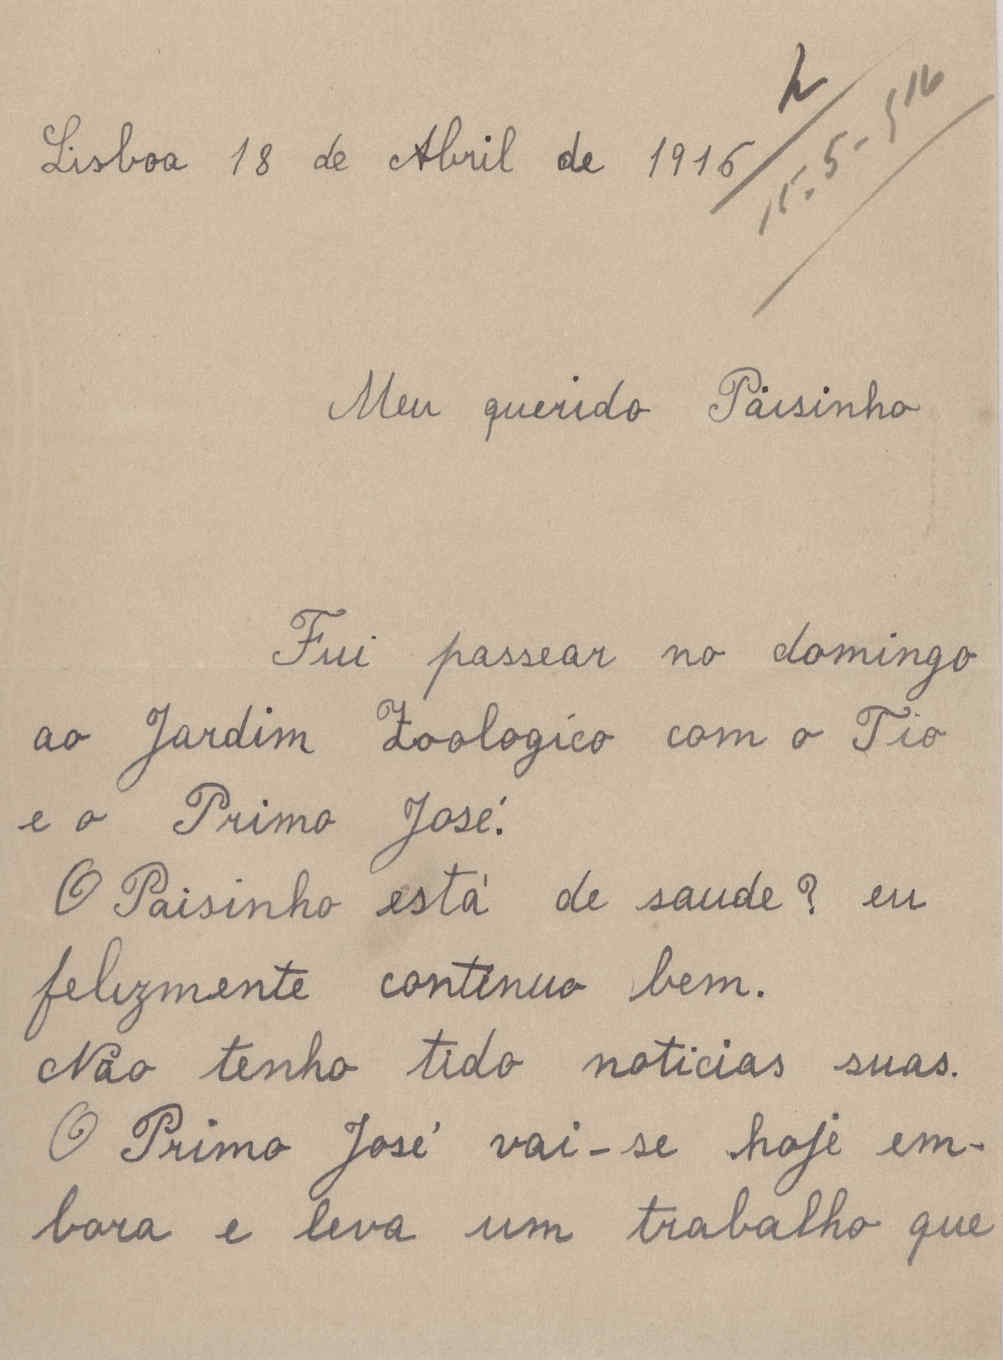 Lisboa 18 de Abril de 1916
15-5-916
Meu querido Paisinho
Fui passear no domingo
ao Jardim Zoologico com o Tio
e o Primo José.
O Paisinho está de saude? eu
felizmente continuo bem.
Não tenho tido noticias suas.
O Primo José vai-se hoje em-
bora e leva um trabalho que